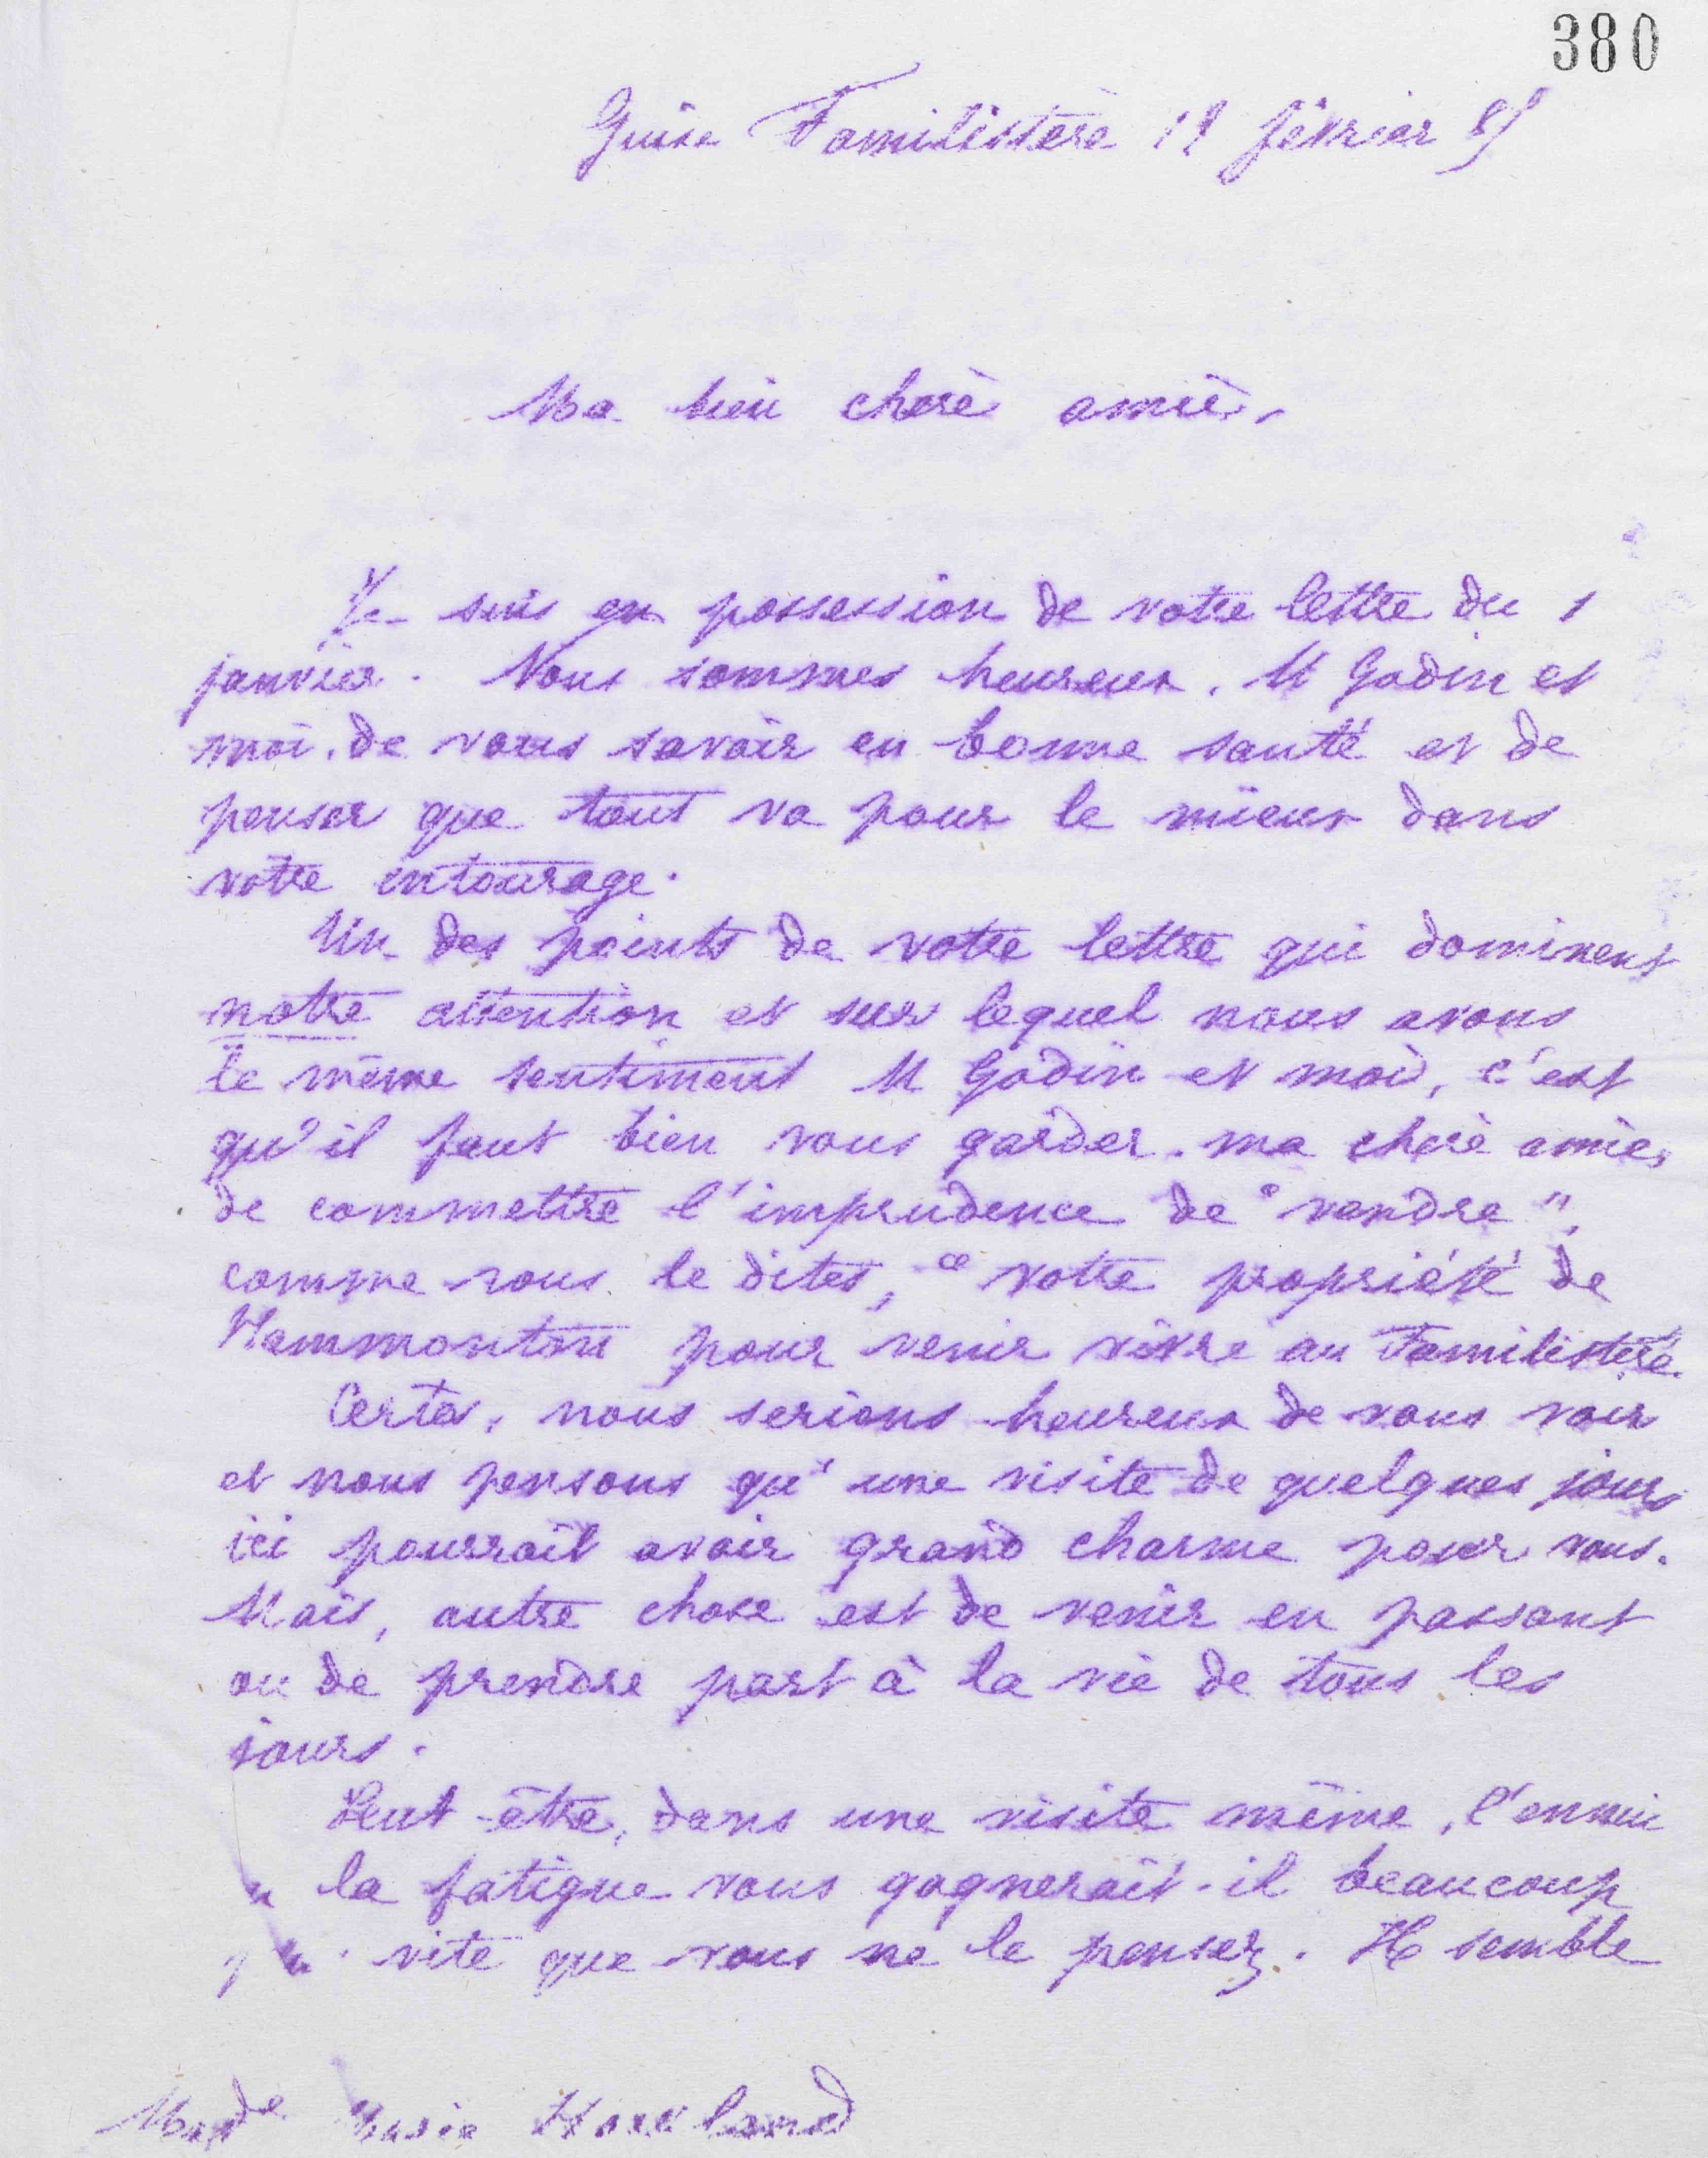 380
Guise Familistère 12 février 85
Ma bien chère amie,
Je suis en possession de votre lettre du 1
janvier. Nous sommes heureux, M Godin et
moi, de vous savoir en bonne santé et de
penser que tout va pour le mieux dans
votre entourage.
Un des points de votre lettre qui dominent
notre attention et sur lequel nous avons
le même sentiment M Godin et moi, c'est
qu'il faut bien vous garder, ma chère amie,
de commettre l'imprudence de "vendre",
comme vous le dites, "votre propriété de
Hammonton pour venir vivre au Familistère.
Certes, nous serions heureux de vous voir
et nous pensons qu'une visite de quelques jours
ici pourrait avoir grand charme pour vous.
Mais, autre chose est de venir en passant
ou de prendre part à la vie de tous les
jours.
Peut-être, dans une visite même, l'ennui
la fatigue vous gagnerait-il beaucoup
vite que vous ne le pensez. Il semble
Made Marie Howland